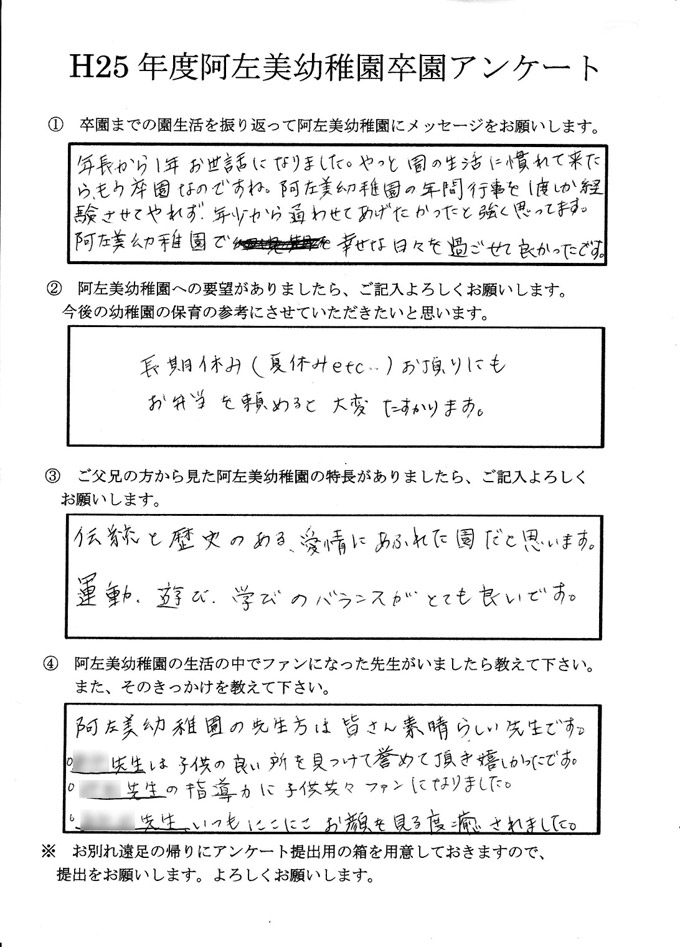 H25 年度阿左美幼稚園卒園アンケート
① 卒園までの園生活を振り返って阿左美幼稚園にメッセージをお願いします。
年長から1年お世話になりました。やっと園の生活に慣れて来た
ら、もう卒園なのですね。阿左美幼稚園の年間行事を1度しか経
験させてやれず、年少から通わせてあげたかったと強く思ってます。
阿左美幼稚園で 幸せな日々を過ごせて良かったです。
② 阿左美幼稚園への要望がありましたら、ご記入よろしくお願いします。
今後の幼稚園の保育の参考にさせていただきたいと思います。
長期休み(夏休みetc..)お預りにも
お弁当を頼めると大変たすかります。
③ ご父兄の方から見た阿左美幼稚園の特長がありましたら、ご記入よろしく
お願いします。
伝統と歴史のある、愛情にあふれた園だと思います。
運動、遊び、学びのバランスがとても良いです。
④ 阿左美幼稚園の生活の中でファンになった先生がいましたら教えて下さい。
また、そのきっかけを教えて下さい。
阿左美幼稚園の先生方は皆さん素晴らしい先生です。
○ 先生は子供の良い所を見つけて誉めて頂き嬉しかったです。
○ 先生の指導力に子供共々ファンになりました。
○ 先生、いつもにこにこお顔を見る度に癒されました。
※ お別れ遠足の帰りにアンケート提出用の箱を用意しておきますので、
提出をお願いします。よろしくお願いします。